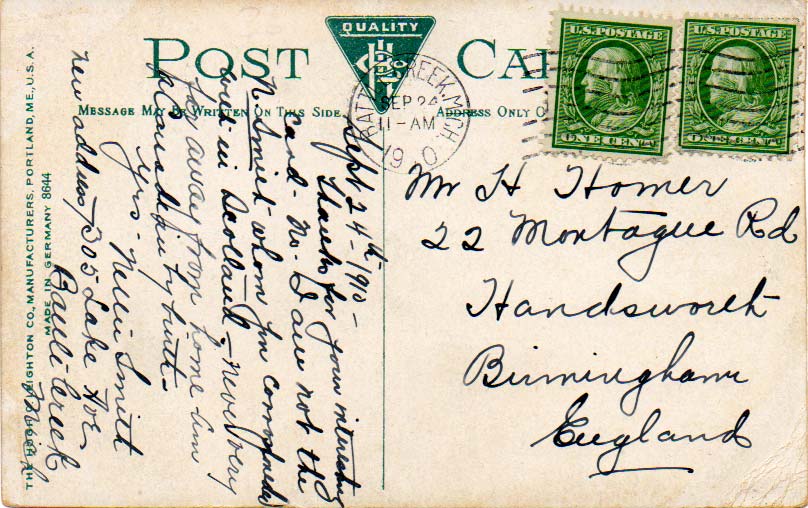 POST CARD
QUALITY
MESSAGE MAY BE WRITTEN ON THIS SIDE
ADDRESS ONLY O
BATTLE CREEK, MICH.
SEP 24
11-AM
1910
U.S. POSTAGE
ONE CENT
U.S. POSTAGE
ONE CENT
THE HUGH C. LEIGHTON CO., MANUFACTURERS, PORTLAND, ME., U.S.A.
MADE IN GERMANY 8644
Sept 24th-1910-
Thanks for your interesting
card - No - I am not the
N. Smith whom you corresponded
with in Scotland, never very
far away from home am
Canadian by birth -
yrs - Nellie Smith
new address, 305 Lake Ave
Battle Creek
Mich
Mr H Homer
22 Montague Rd
Handsworth
Birmingham
England